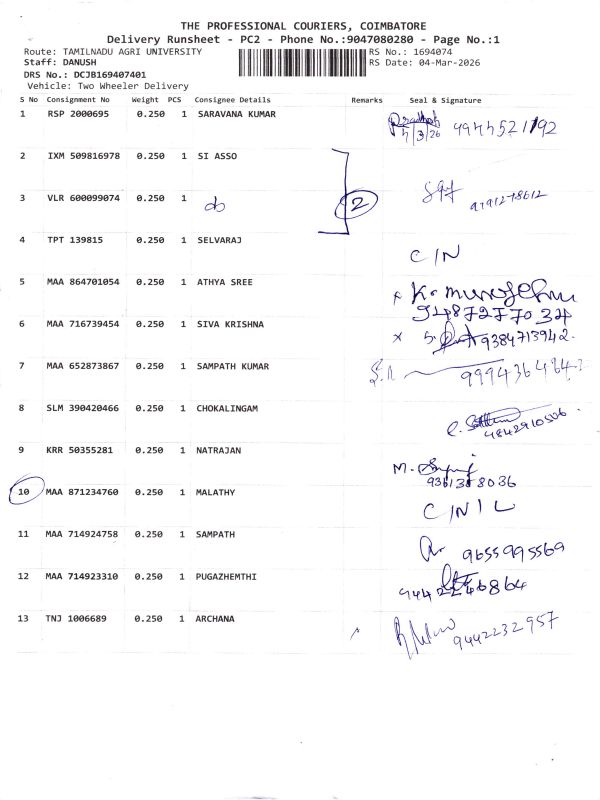 THE PROFESSIONAL COURIERS, COIMBATORE
Delivery Runsheet - PC2 - Phone No.:9047080280 - Page No.:1
Route: TAMILNADU AGRI UNIVERSITY
RS No.: 1694074
Staff: DANUSH
RS Date: 04-Mar-2026
DRS No.: DCJB169407401
Vehicle: Two Wheeler Delivery
S No Consignment No Weight PCS Consignee Details Remarks Seal & Signature
1 RSP 2000695 0.250 1 SARAVANA KUMAR
4/3/26
2 IXM 509816978 0.250 1 SI ASSO
3 VLR 600099074 0.250 1 do 2
9791278612
4 TPT 139815 0.250 1 SELVARAJ
C/N
5 MAA 864701054 0.250 1 ATHYA SREE
9487277034
6 MAA 716739454 0.250 1 SIVA KRISHNA
x 9384713942.
7 MAA 652873867 0.250 1 SAMPATH KUMAR
8 SLM 390420466 0.250 1 CHOKALINGAM
4842910506
9 KRR 50355281 0.250 1 NATRAJAN
M.
10 MAA 871234760 0.250 1 MALATHY
11 MAA 714924758 0.250 1 SAMPATH
9655995569
12 MAA 714923310 0.250 1 PUGAZHEMTHI
13 TNJ 1006689 0.250 1 ARCHANA
9442232957